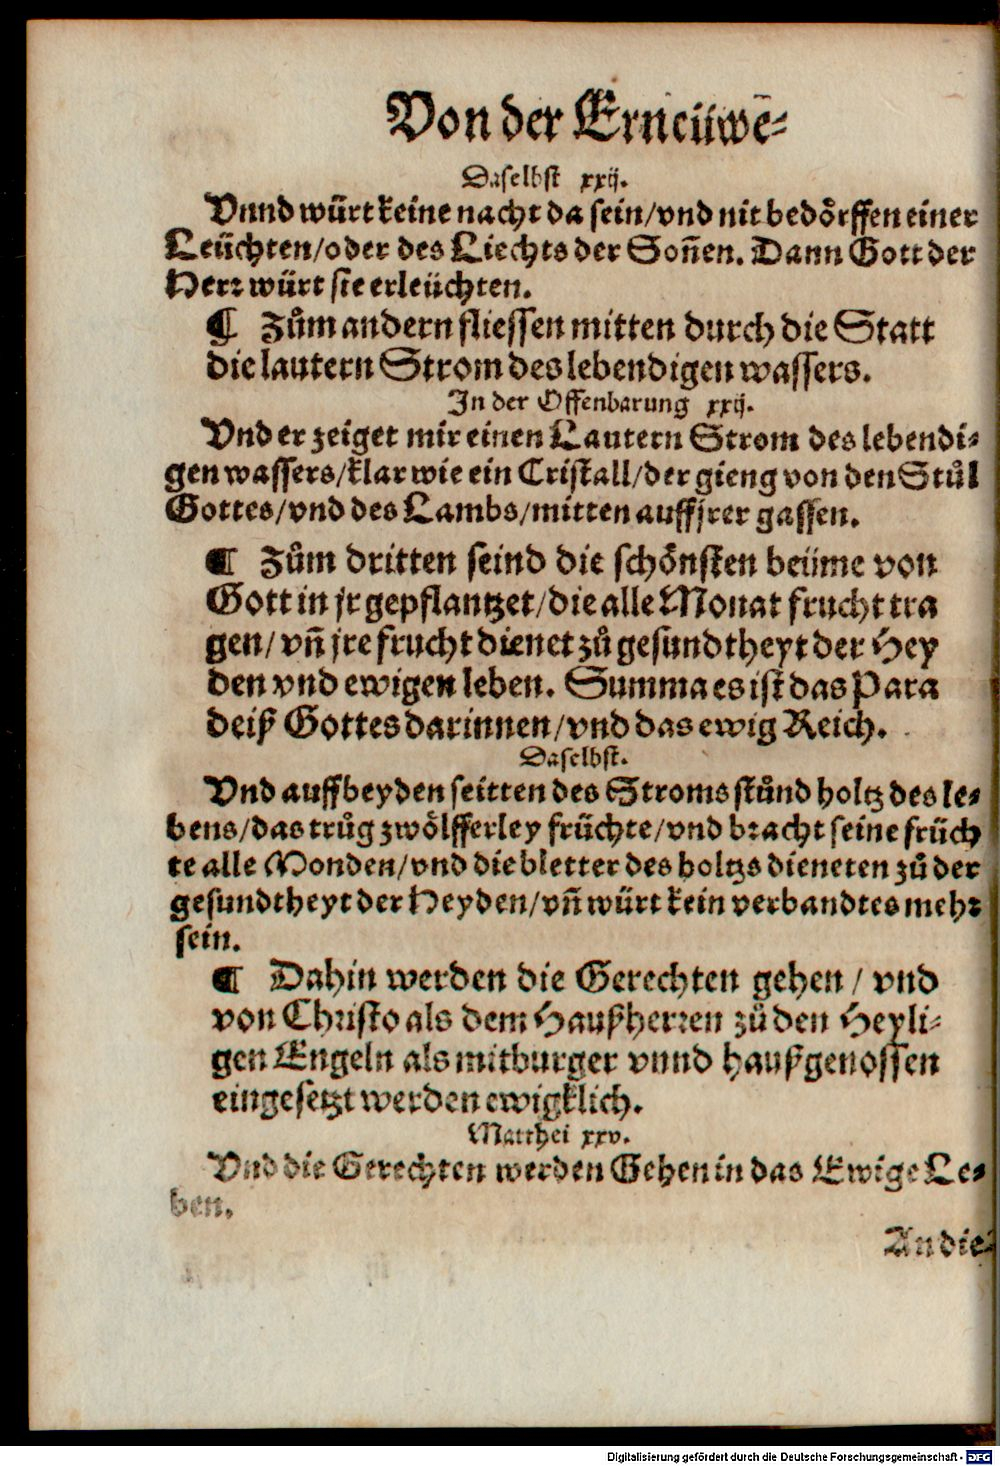 Von der Erneüwē⸗
Daselbst xxij.
Vnnd würt keine nacht da sein/vnd nit bedörffen einer
Leüchten/oder des Liechts der Soñen. Dann Gott der
Herr würt sie erleüchten.
¶ Zům andern fliessen mitten durch die Statt
die lautern Strom des lebendigen wassers.
In der Offenbarung xxij.
Vnd er zeiget mir einen Lautern Strom des lebendi⸗
gen wassers/klar wie ein Cristall/der gieng von den Stůl
Gottes/vnd des Lambs/mitten auff jrer gassen.
¶ Zům dritten seind die schönsten beüme von
Gott in jr gepflantzet/die alle Monat frucht tra
gen/ vñ jre frucht dienet zů gesundtheyt der Hey
den vnd ewigen leben. Summa es ist das Para
deiß Gottes darinnen/vnd das ewig Reich.
Daselbst.
Vnd auff beyden seitten des Stroms stůnd holtz des le⸗
bens/das trůg zwölfferley früchte/vnd bracht seine früch
te alle Monden/vnd die bletter des holtzs dieneten zů der
gesundtheyt der Heyden/vñ würt kein verbandtes mehr
sein.
¶ Dahin werden die Gerechten gehen / vnd
von Christo als dem Haußherren zů den Heyli⸗
gen Engeln als mitburger vnnd haußgenossen
eingesetzt werden ewigklich.
Matthei xxv.
Vnd die Gerechten werden Gehen in das Ewige Le⸗
ben.
An die⸗
Digitalisierung gefördert durch die Deutsche Forschungsgemeinschaft - DFG